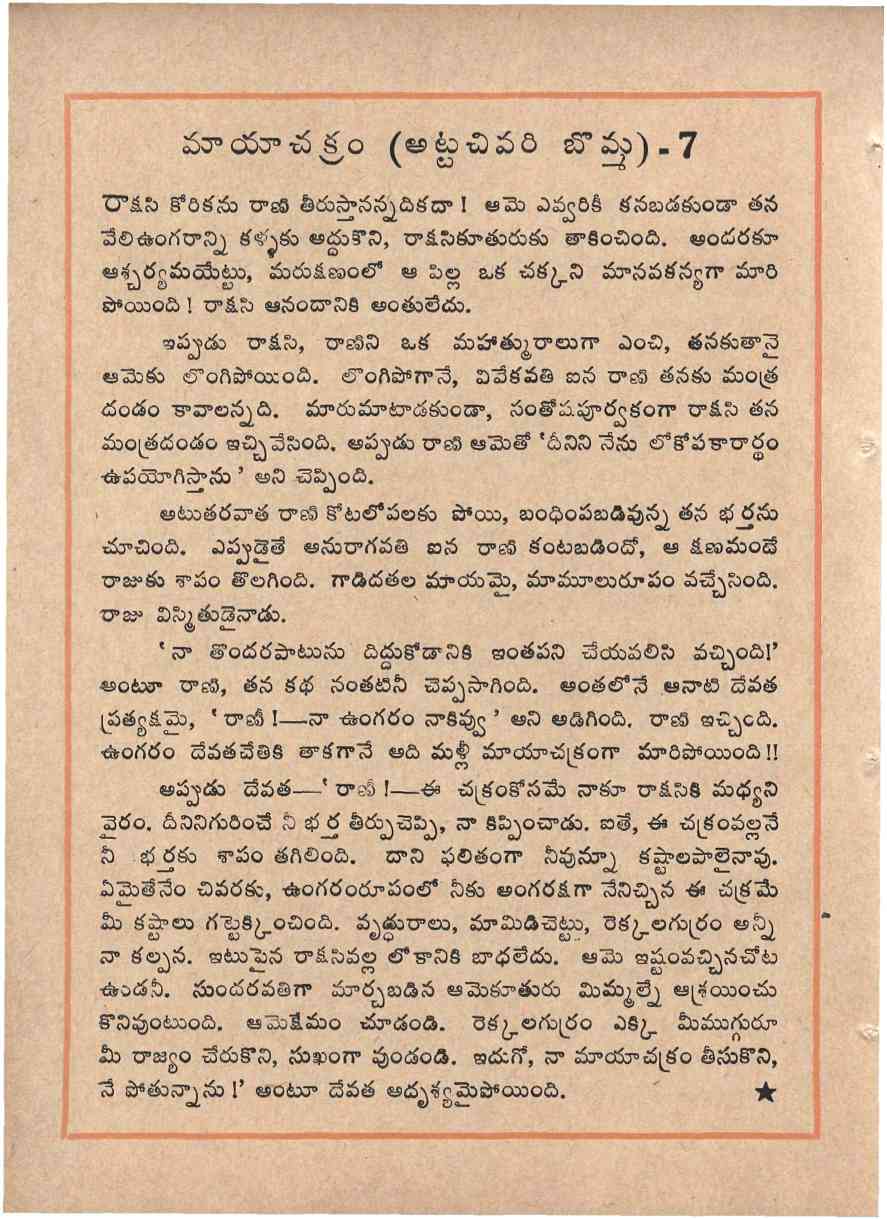 మాయాచక్రం (అట్టచివరి బొమ్మ) - 7
రాక్షసి కోరికను రాణి తీరుస్తానన్నదికదా! ఆమె ఎవ్వరికీ కనబడకుండా తన
వేలిఉంగరాన్ని కళ్ళకు అద్దుకొని, రాక్షసికూతురుకు తాకించింది. అందరకూ
ఆశ్చర్యమయేట్టు, మరుక్షణంలో ఆ పిల్ల ఒక చక్కని మానవకన్యగా మారి
పోయింది! రాక్షసి ఆనందానికి అంతులేదు.
ఇప్పుడు రాక్షసి, రాణిని ఒక మహాత్మురాలుగా ఎంచి, తనకుతానై
ఆమెకు లొంగిపోయింది. లొంగిపోగానే, వివేకవతి ఐన రాణి తనకు మంత్ర
దండం కావాలన్నది. మారుమాటాడకుండా, సంతోషపూర్వకంగా రాక్షసి తన
మంత్రదండం ఇచ్చివేసింది. అప్పుడు రాణి ఆమెతో 'దీనిని నేను లోకోపకారార్థం
ఉపయోగిస్తాను' అని చెప్పింది.
అటుతరవాత రాణి కోటలోపలకు పోయి, బంధింపబడివున్న తన భర్తను
చూచింది. ఎప్పుడైతే అనురాగవతి ఐన రాణి కంటబడిందో, ఆ క్షణమందే
రాజుకు శాపం తొలగింది. గాడిదతల మాయమై, మామూలురూపం వచ్చేసింది.
రాజు విస్మితుడైనాడు.
'నా తొందరపాటును దిద్దుకోడానికి ఇంతపని చేయవలిసి వచ్చింది!'
అంటూ రాణి, తన కథ నంతటినీ చెప్పసాగింది. అంతలోనే ఆనాటి దేవత
ప్రత్యక్షమై, 'రాణీ!—నా ఉంగరం నాకివ్వు' అని అడిగింది. రాణి ఇచ్చింది.
ఉంగరం దేవతచేతికి తాకగానే అది మళ్లీ మాయాచక్రంగా మారిపోయింది!!
అప్పుడు దేవత—'రాణీ!—ఈ చక్రంకోసమే నాకూ రాక్షసికి మధ్యని
వైరం. దీనినిగురించే నీ భర్త తీర్పుచెప్పి, నా కిప్పించాడు. ఐతే, ఈ చక్రంవల్లనే
నీ భర్తకు శాపం తగిలింది. దాని ఫలితంగా నీవున్నూ కష్టాలపాలైనావు.
ఏమైతేనేం చివరకు, ఉంగరంరూపంలో నీకు అంగరక్షగా నేనిచ్చిన ఈ చక్రమే
మీ కష్టాలు గట్టెక్కించింది. వృద్ధురాలు, మామిడిచెట్టు, రెక్కలగుర్రం అన్నీ
నా కల్పన. ఇటుపైన రాక్షసివల్ల లోకానికి బాధలేదు. ఆమె ఇష్టంవచ్చినచోట
ఉండనీ. సుందరవతిగా మార్చబడిన ఆమెకూతురు మిమ్మల్నే ఆశ్రయించు
కొనివుంటుంది. ఆమెక్షేమం చూడండి. రెక్కలగుర్రం ఎక్కి మీముగ్గురూ
మీ రాజ్యం చేరుకొని, సుఖంగా వుండండి. ఇదుగో, నా మాయాచక్రం తీసుకొని,
నే పోతున్నాను!' అంటూ దేవత అదృశ్యమైపోయింది. ★